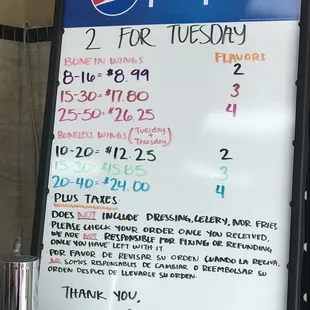 2 FOR TUESDAY
BONE IN WINGS FLAVORS
8-16=$8.99 2
15-30=$17.80 3
25-50=$26.25 4
BONELESS WINGS (Tuesday + Thursday)
10-20=$12.25 2
15-30=$15.85 3
20-40=$24.00 4
PLUS TAXES
DOES NOT INCLUDE DRESSING, CELERY, NOR FRIES
PLEASE CHECK YOUR ORDER ONCE YOU RECEIVED,
WE ARE NOT RESPONSIBLE FOR FIXING OR REFUNDING
ONCE YOU HAVE LEFT WITH IT.
POR FAVOR DE REVISAR SU ORDEN CUANDO LA RECIVA,
NO SOMOS RESPONSABLES DE CAMBIAR O REEMBOLSAR SU
ORDEN DESPUES DE LLEVARSE SU ORDEN.
THANK YOU,